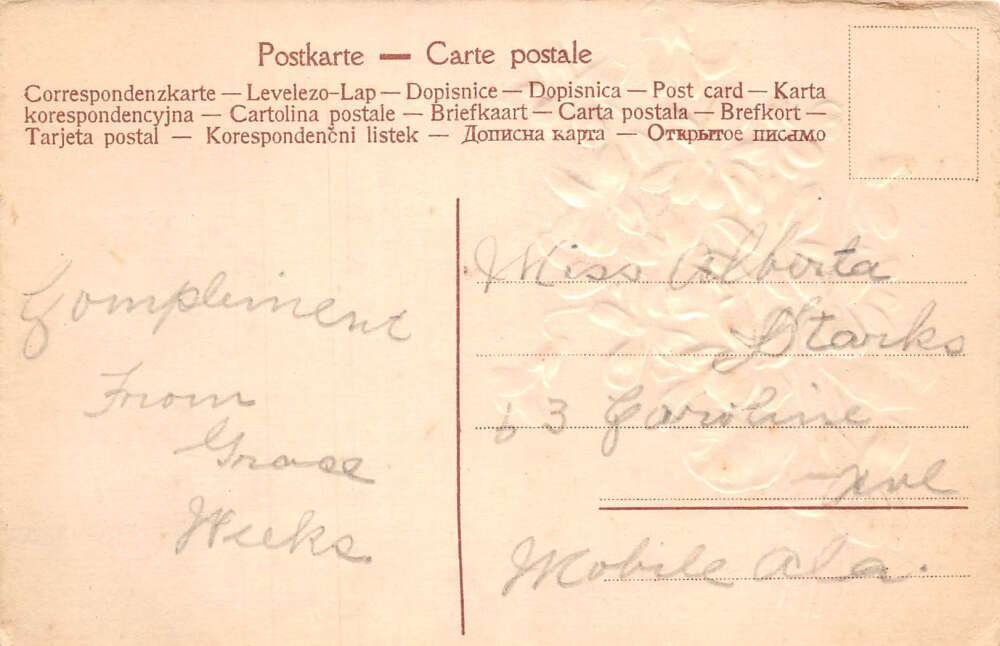 Postkarte — Carte postale
Correspondenzkarte — Levelezo-Lap — Dopisnice — Dopisnica — Post card — Karta
korespondencyjna — Cartolina postale — Briefkaart — Carta postala — Brefkort —
Tarjeta postal — Korespondenčni listek — Дописна карта — Открытое письмо
Compliment
From
Grace
Weeks
Miss Alberta
Starks
63 Caroline
Mobile Ala.